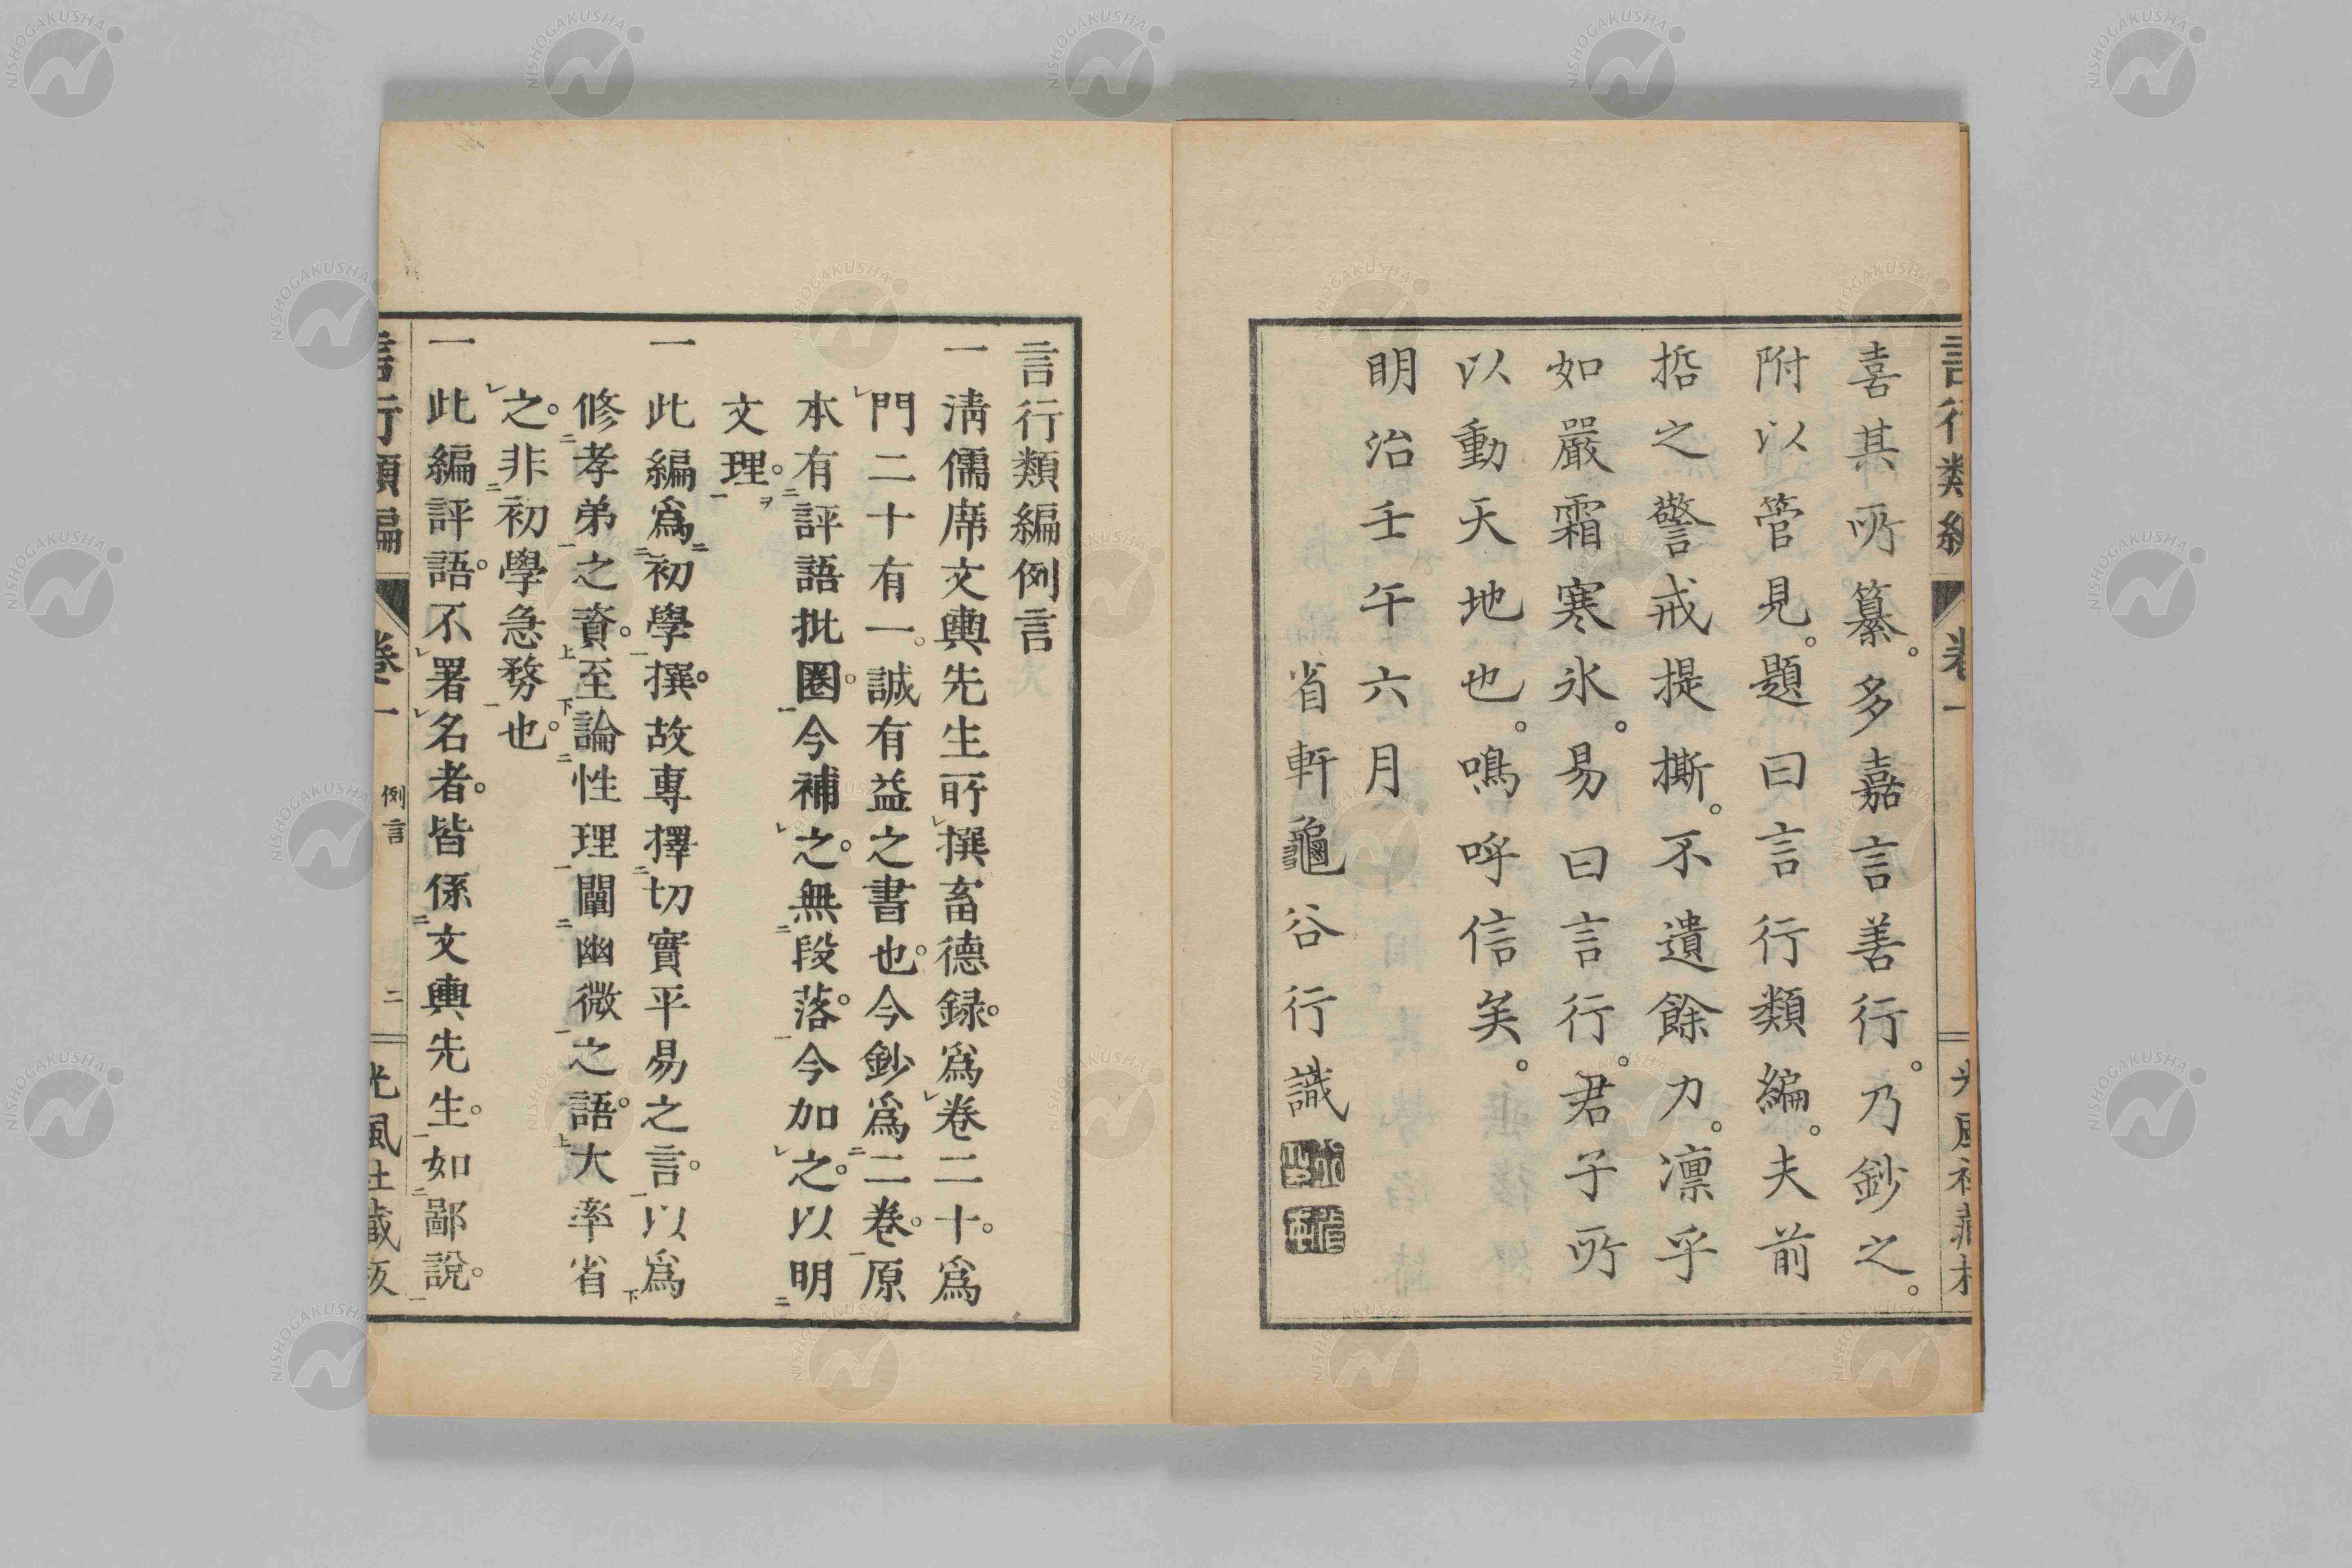 喜其所纂。多嘉言善行。乃鈔之。
附以管見。題曰言行類編。夫前
哲之警戒提撕。不遺餘力。凛乎
如嚴霜寒氷。易曰言行。君子所
以動天地也。嗚呼信矣。
明治壬午六月
省軒龜谷行識
言行類編例言
一清儒席文輿先生所撰畜德録。爲卷二十。爲
門二十有一。誠有益之書也。今鈔爲二卷。原
本有評語批圈。今補之。無段落。今加之。以明
文理。
一此編爲初學撰。故專擇切實平易之言。以爲
修孝弟之資。至論性理闡幽微之語。大率省
之。非初學急務也。
一此編評語。不署名者。皆係文輿先生。如鄙說。
言行類編 卷一 例言 二 光風社藏版